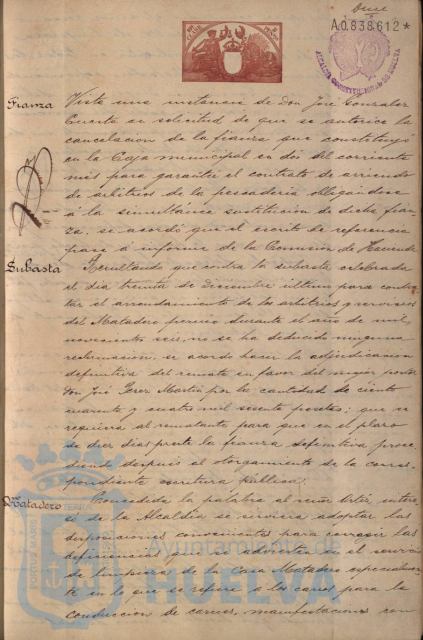 Once
A.0.838.612*
ALCALDIA CONSTITUCIONAL DE HUELVA
Fianza
Vista una instancia de don José Gonzalez
Cuesta en solicitud de que se autorice la
cancelacion de la fianza que constituyó
en la Caja municipal en dos del corriente
mes para garantir el contrato de arriendo
de arbitrios de la pescaderia obligandose
á la simultánea sustitucion de dicha fian-
za, se acordó que el escrito de referencia
pase á informe de la Comision de Hacienda
Subasta
Resultando que contra la subasta celebrada
el dia treinta de diciembre último para contra-
tar el arrendamiento de los arbitrios y servicios
del Matadero publico durante el año de mil
novecientos seis, no se ha deducido ninguna
reclamacion, se acordó hacer la adjudicacion
definitiva del remate en favor del mejor postor
Don José Perez Martin por la cantidad de ciento
cuarenta y cuatro mil sesenta pesetas; que se
requiera al rematante para que en el plazo
de diez dias preste la fianza definitiva proce-
diendo después al otorgamiento de la corres-
pondiente escritura pública.
Matadero
Concedida la palabra al señor intere-
só de la Alcaldia se sirviera adoptar las
disposiciones convenientes para corregir las
deficiencias que se advierten en el servicio
de limpieza de la Casa Matadero especialmen-
te en lo que se refiere a los carros para la
conduccion de carnes, manifestaciones con
PORTUS MARIS
TERRAE
Ayuntamiento de
HUELVA